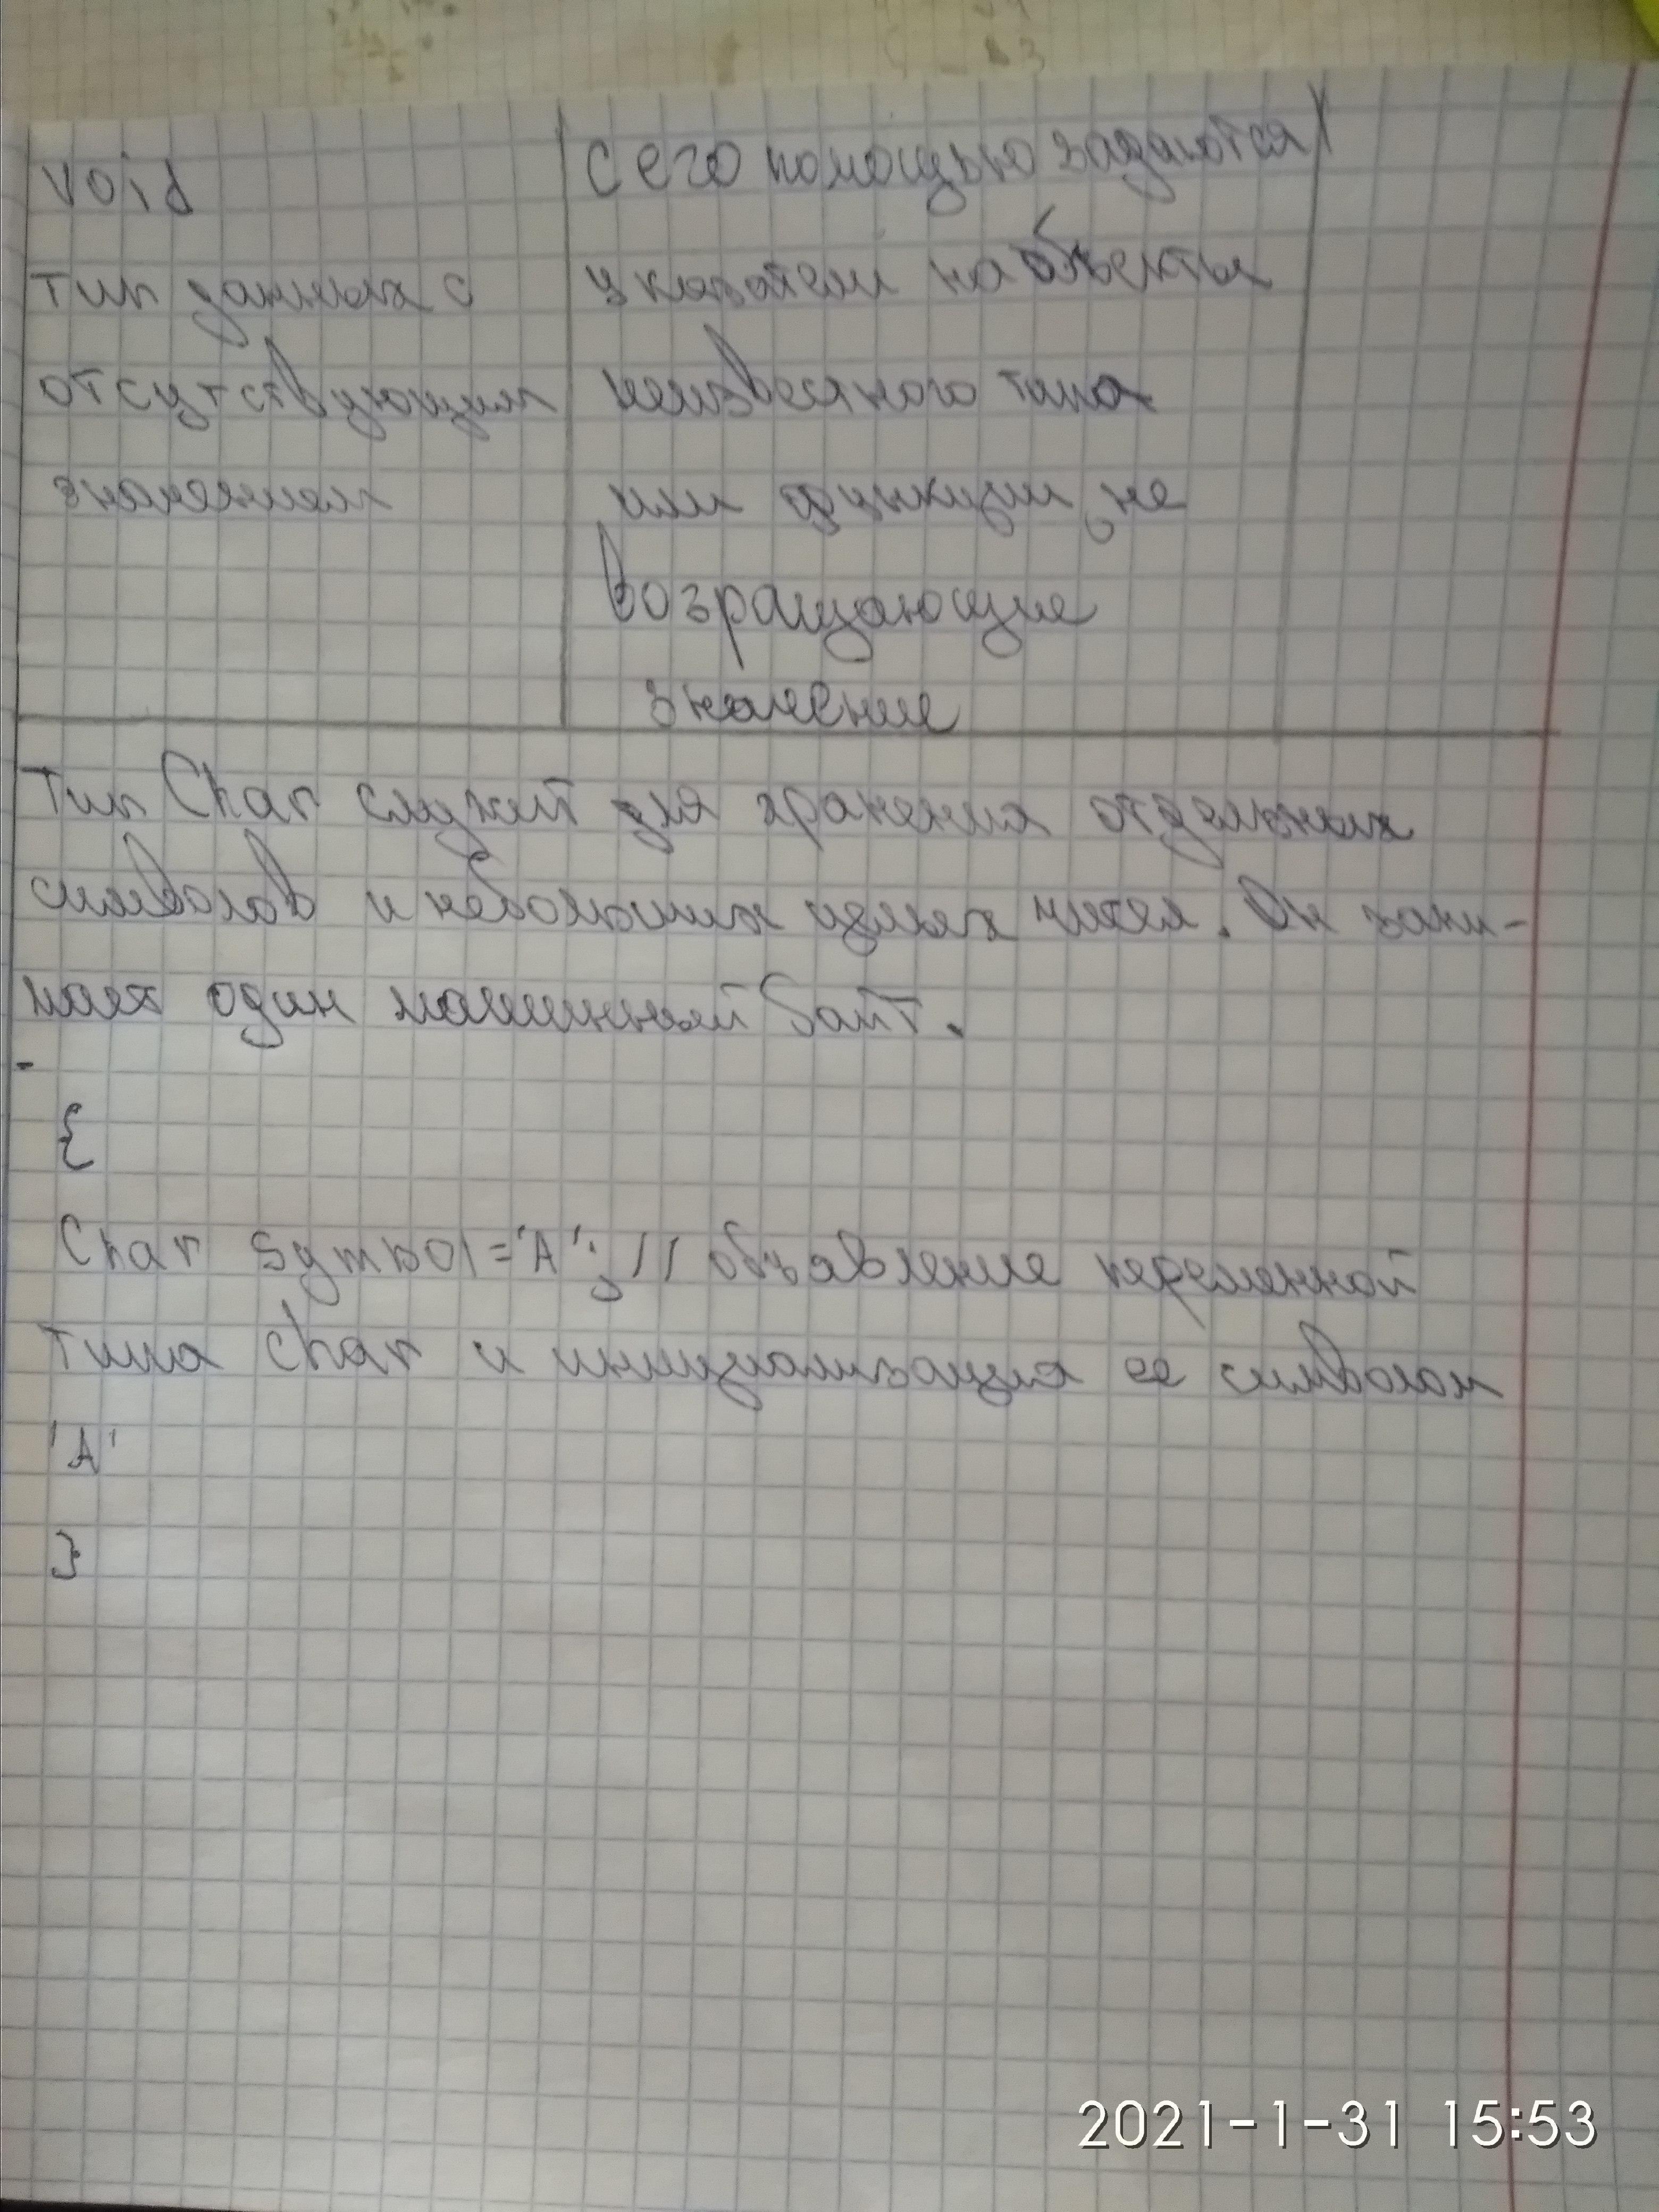 void
тип данных с
отсутствующим
значением
с его помощью задаются
указатели на объекты
неизвестного типа
или функции, не
возращающие
значение
Тип Char служит для хранения отдельных
символов и небольших целых чисел. Он зани-
мает один машинный байт.
{
Char symbol='A'; // объявление переменной
типа char и инициализация ее символом
'A'
}
2021-1-31 15:53